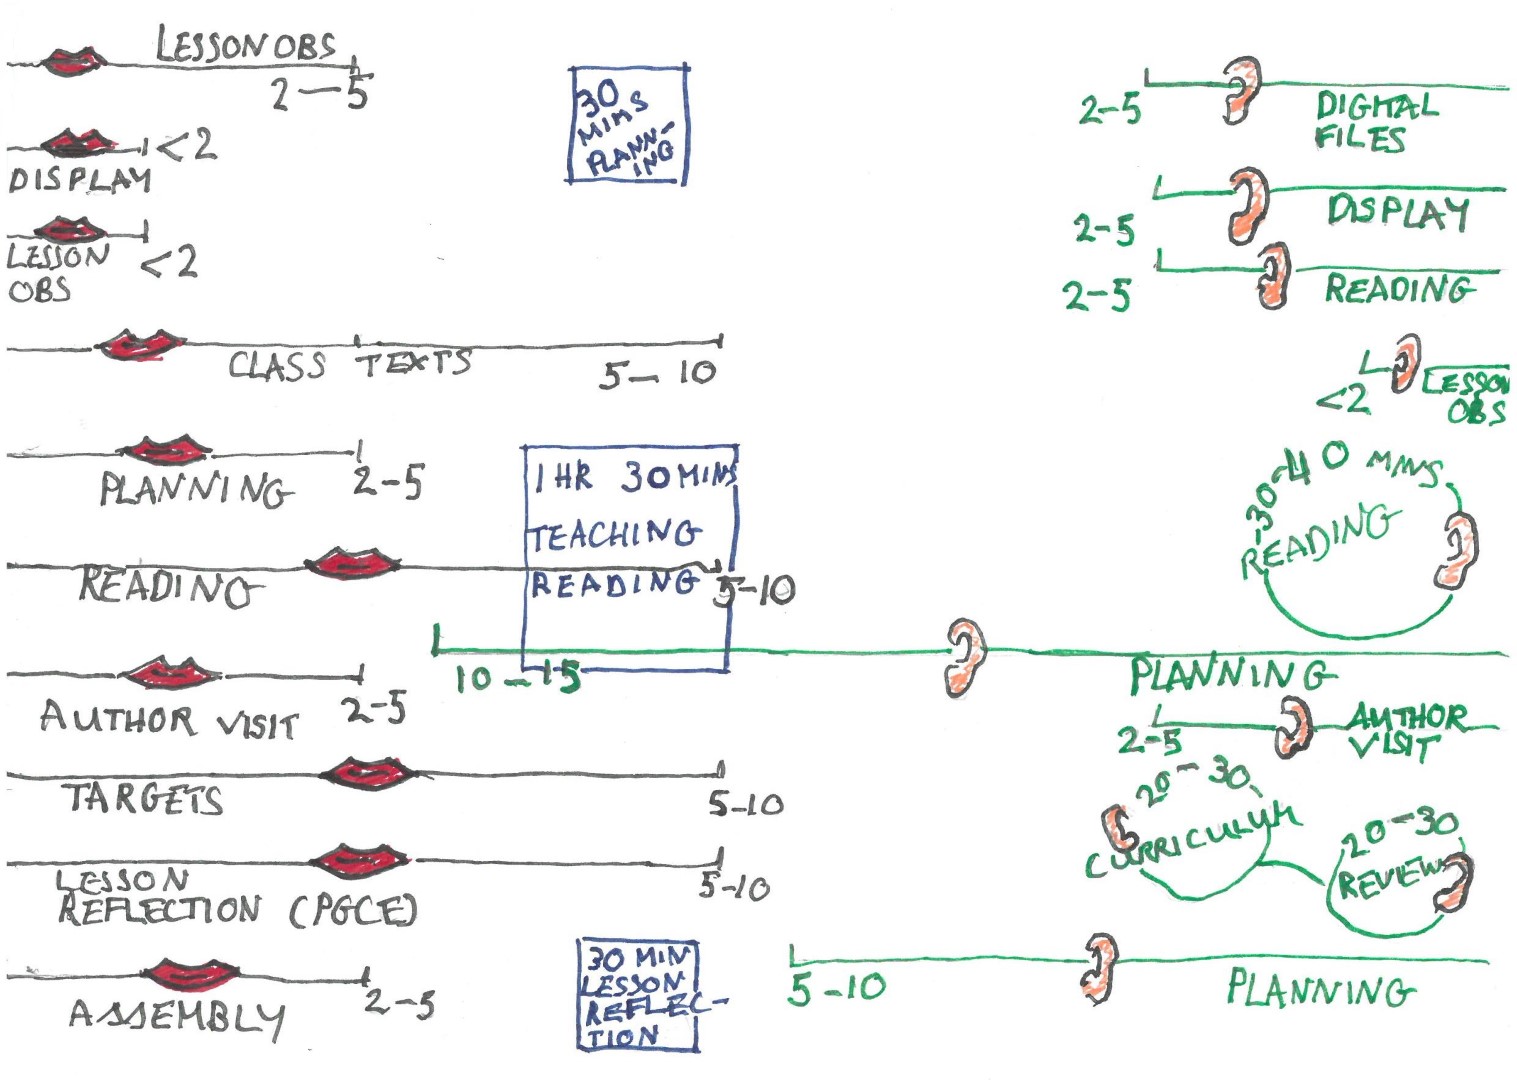 LESSON OBS
2—5
<2
DISPLAY
LESSON
OBS
<2
CLASS TEXTS
5—10
PLANNING
2-5
READING
5-10
AUTHOR VISIT
2-5
TARGETS
5-10
LESSON
REFLECTION (PGCE)
5-10
ASSEMBLY
2-5
30
MINS
PLANN-
ING
1 HR 30 MINS
TEACHING
READING
30 MIN
LESSON
REFLEC-
TION
2-5
DIGITAL
FILES
2-5
DISPLAY
2-5
READING
<2
LESSON
OBS
30-40 MINS
READING
10-15
PLANNING
2-5
AUTHOR
VISIT
20-30
CURRICULUM
20-30
REVIEW
5-10
PLANNING